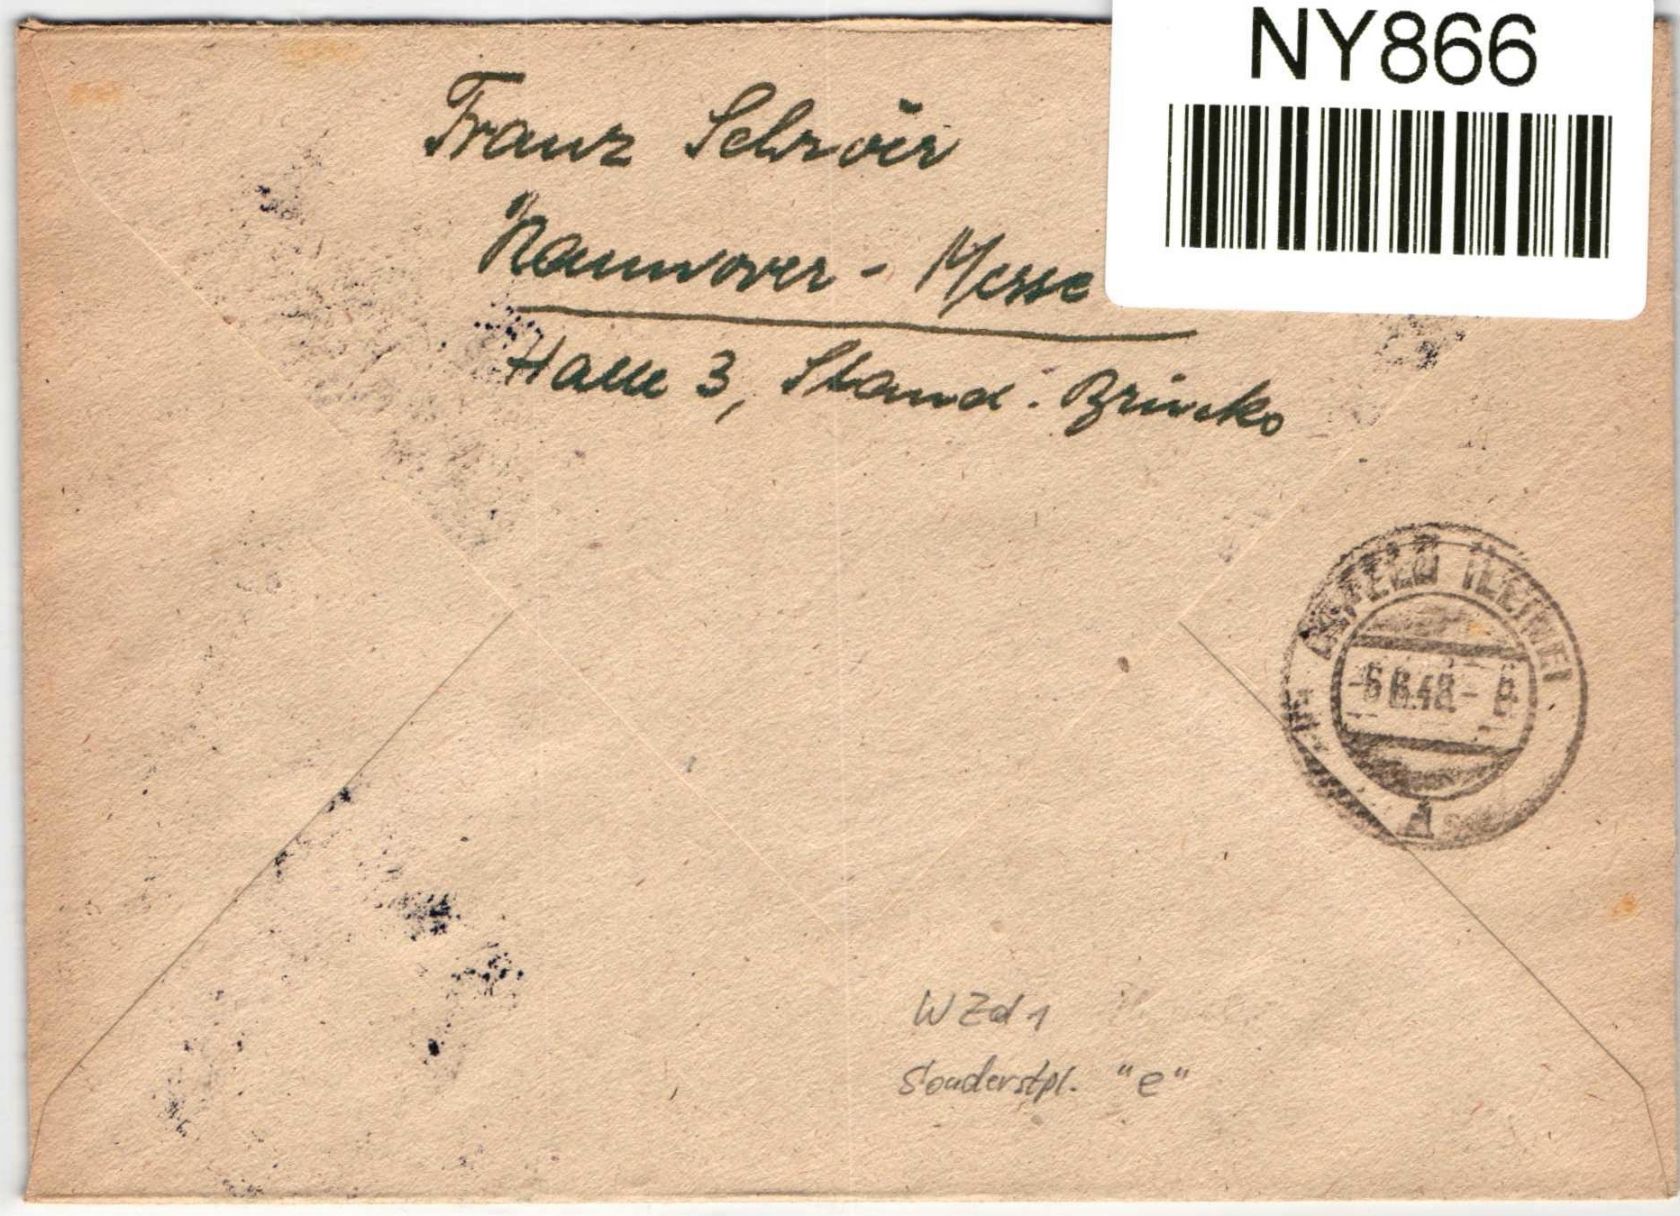 NY866
Franz Schröer
Hannover - Messe
Halle 3, Stand: Brincko
-6.6.48.-
A
WZd 1
Sonderstpl. "e"